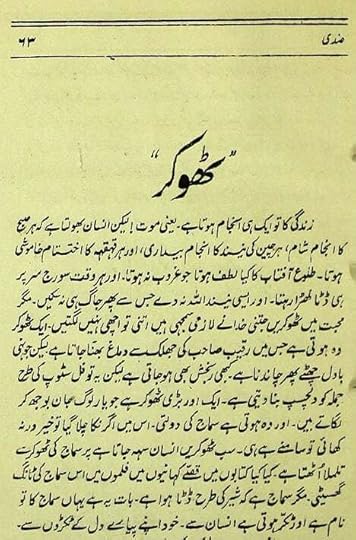 ۶۳ ضدی
"ٹھوکر"
زندگی کا تو ایک ہی انجام ہوتا ہے۔ یعنی موت! لیکن انسان بھولتا ہے کہ ہر صبح
کا انجام شام، ہر چین کی نیند کا انجام بیداری، اور ہر قہقہہ کا اختتام خاموشی
ہوتا۔ طلوع آفتاب کا کیا لطف ہوتا جو غروب نہ ہوتا۔ اور ہر وقت سورج سر پر
ہی ڈٹا کھڑا رہتا۔ اور ایسی نیند اللہ نہ دے جس سے پھر جاگ ہی نہ سکیں۔ مگر
محبت میں ٹھوکریں جتنی خدا نے لازمی سمجھی ہیں اتنی تو اچھی نہیں لگتیں۔ ایک ٹھوکر
وہ ہوتی ہے جس میں رقیب صاحب کی جھلک سے دماغ بھنا جاتا ہے لیکن جونہی
بادل چھٹے پھر چاندنا ہے۔ کبھی رنجش بھی ہو جاتی ہے لیکن یہ تو فل سٹوپ کی طرح
جملہ کو دلچسپ بنا دیتی ہے۔ ایک اور بڑی ٹھوکر ہے جو یار لوگ جان بوجھ کر
لگاتے ہیں۔ اور وہ ہوتی ہے سماج کی دولتی۔ اس میں اگر نکلا چلا گیا تو خیر ورنہ
کھائی تو سامنے ہے ہی۔ سب ٹھوکریں انسان سہہ جاتا ہے پر سماج کی ٹھوکر سے
تلملا اٹھتا ہے۔ کیا کیا کتابوں میں قصے کہانیوں میں فلموں میں اس سماج کی ٹانگ
گھسیٹی۔ مگر سماج ہے کہ شیر کی طرح ڈٹا ہوا ہے۔ بات یہ ہے یہاں سماج کا تو
نام ہے اور ٹکر ہوتی ہے انسان سے۔ خود اپنے پیارے دل کے ٹکڑوں سے۔